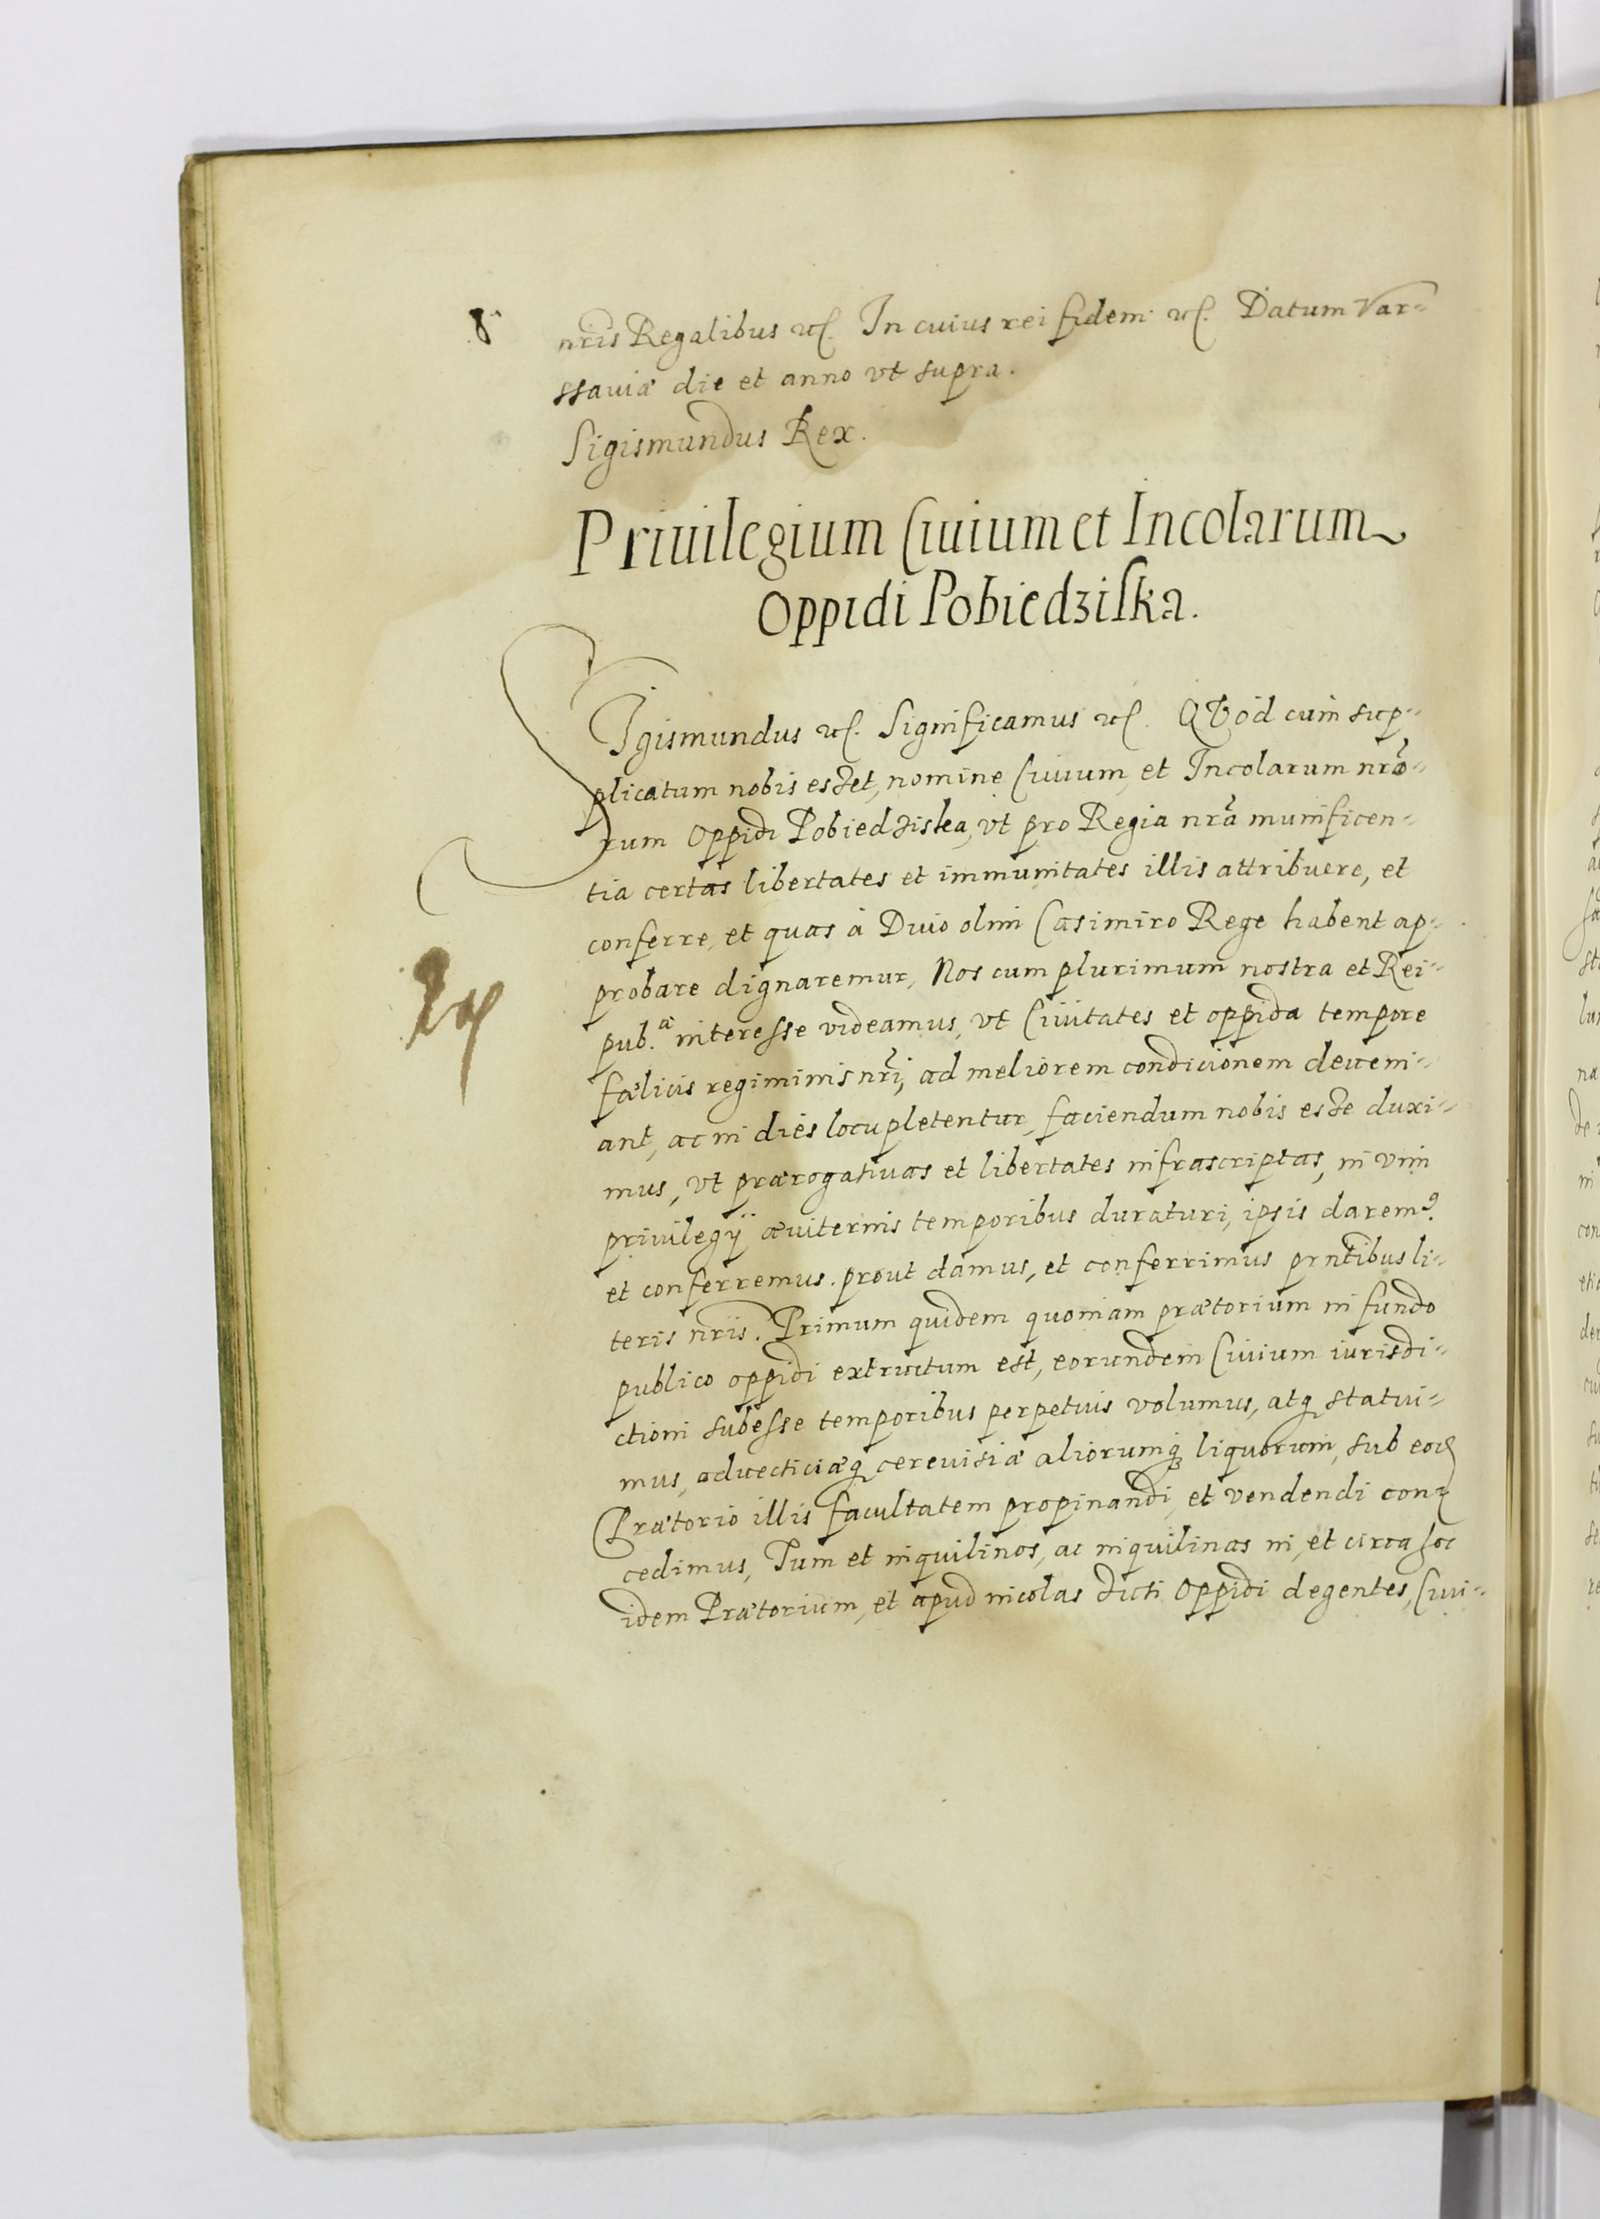 8
nr̃is Regalibus ꝛc. In cuius rei fidem ꝛc. Datum Var-
ssauiæ die et anno vt supra.
Sigismundus Rex.
Priuilegium Ciuium et Incolarum
Oppidi Pobiedziska.
Sigismundus ꝛc. Significamus ꝛc. QVod cum sup-
plicatum nobis esset, nomine Ciuium et Incolarum nr̃o-
rum Oppidi Pobiedziska, vt pro Regia nr̃a munificen-
tia certas libertates et immunitates illis attribuere, et
conferre, et quas à Diuo olim Casimiro Rege habent ap-
probare dignaremur, Nos cum plurimum nostra et Rei-
pub.ᵃᵉ interesse videamus, vt Ciuitates et oppida tempore
fælicis regiminis nr̃i, ad meliorem condicionem deueni-
ant, ac in dies locupletentur, faciendum nobis esse duxi-
mus, vt prærogatiuas et libertates infrascriptas, in vim
priuilegÿ æuiternis temporibus duraturi, ipsis daremꝰ.
et conferremus. prout damus, et conferrimus prñtibus li-
teris nr̃is. Primum quidem quoniam prætorium in fundo
publico oppidi extructum est, eorundem Ciuium iurisdi-
ctioni subesse temporibus perpetuis volumus, atq statui-
mus, aduecticiæq cereuisiæ aliorumq liquorum, sub eod
Prætorio illis facultatem propinandi, et vendendi con-
cedimus, Tum et inquilinos, ac inquilinas in, et circa hoc
idem Prætorium, et apud incolas dicti Oppidi degentes, Ciui-